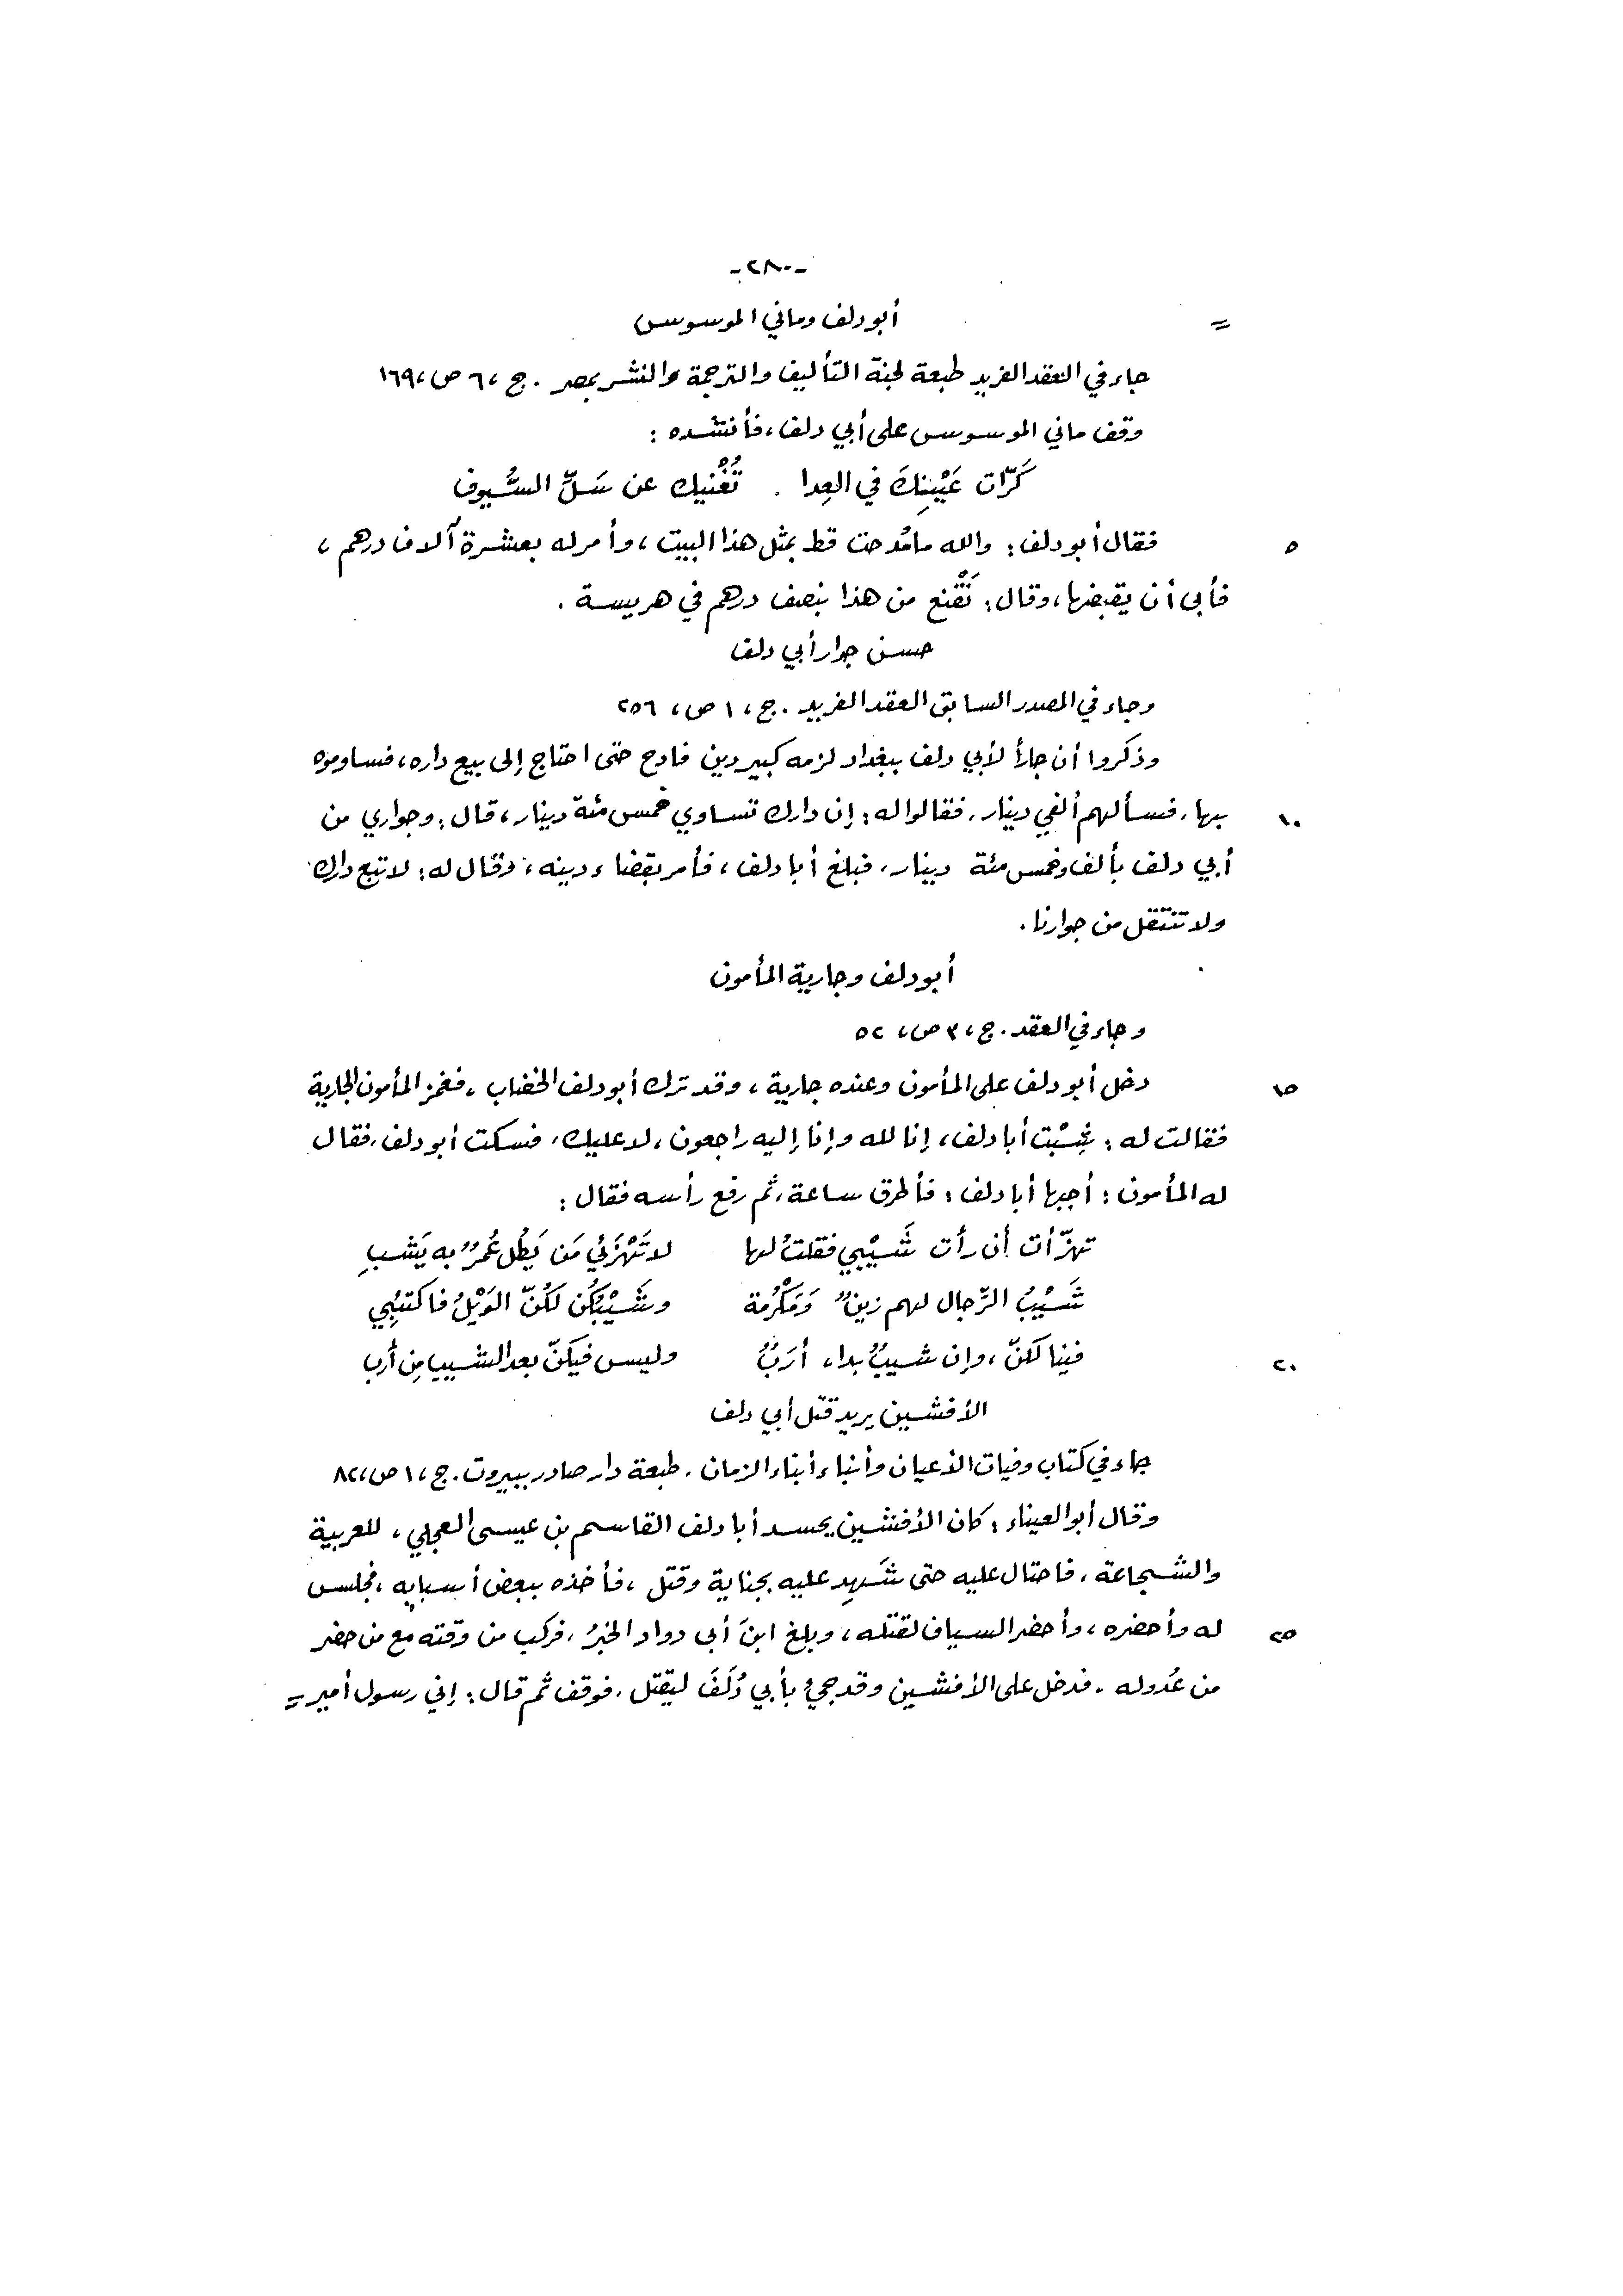 -٢٨٠-
= أبو دلف وماني الموسوس
جاء في العقد الفريد طبعة لجنة التأليف والترجمة والنشر بمصر . ج ، ٦ ص ، ١٦٩
وقف ماني الموسوس على أبي دلف ، فأنشده :
كَرّات عَيْنِكَ في العِدا . تُغْنيك عن سَلِّ السُّيوف
٥ فقال أبو دلف : والله ما مُدحت قط بمثل هذا البيت ، وأمر له بعشرة آلاف درهم ،
فأبى أن يقبضها ، وقال : نَقْنع من هذا بنصف درهم في هريسة .
حسن جوار أبي دلف
وجاء في المصدر السابق العقد الفريد . ج ، ١ ص ، ٢٥٦
وذكروا أن جاراً لأبي دلف ببغداد لزمه كبير دين فادح حتى احتاج إلى بيع داره ، فساوموه
١٠ بها ، فسألهم ألفي دينار ، فقالوا له : إن دارك تساوي خمس مئة دينار ، قال : وجواري من
أبي دلف بألف وخمس مئة دينار ، فبلغ أبا دلف ، فأمر بقضاء دينه ، وقال له : لا تبع دارك
ولا تنتقل من جوارنا .
أبو دلف وجارية المأمون
وجاء في العقد . ج ، ٣ ص ، ٥٢
١٥ دخل أبو دلف على المأمون وعنده جارية ، وقد ترك أبو دلف الخضاب ، فغمز المأمون الجارية
فقالت له : شِبْتَ أبا دلف ، إنا لله وإنا إليه راجعون ، لا عليك ، فسكت أبو دلف ، فقال
له المأمون : أجبها أبا دلف : فأطرق ساعة ، ثم رفع رأسه فقال :
تهزّأت أن رأت شَيْبي فقلتُ لها لا تَهْزَئي مَن يَطُل عُمرٌ به يَشبِ
شَيْبُ الرِّجال لهم زينٌ وَمَكْرُمة وشَيْبُكُن لَكُنّ الوَيْلُ فاكتئبي
٢٠ فينا لكنّ ، وإن شيبٌ بدا ، أرَبٌ وليس فيكنّ بعد الشيب مِن أرب
الأفشين يريد قتل أبي دلف
جاء في كتاب وفيات الأعيان وأنباء أبناء الزمان . طبعة دار صادر ببيروت . ج ، ١ ص ، ٨٢
وقال أبو العيناء : كان الأفشين يحسد أبا دلف القاسم بن عيسى العجلي ، للعربية
والشجاعة ، فاحتال عليه حتى شَهِد عليه بجناية وقتل ، فأخذه ببعض أسبابه ، فجلس
٢٥ له وأحضره ، وأحضر السياف لقتله ، وبلغ ابنَ أبي دواد الخبرُ ، فركب من وقته مع من حضر
من عُدوله . فدخل على الأفشين وقد جيء بأبي دُلَفَ ليقتل ، فوقف ثم قال : إني رسول أمير =